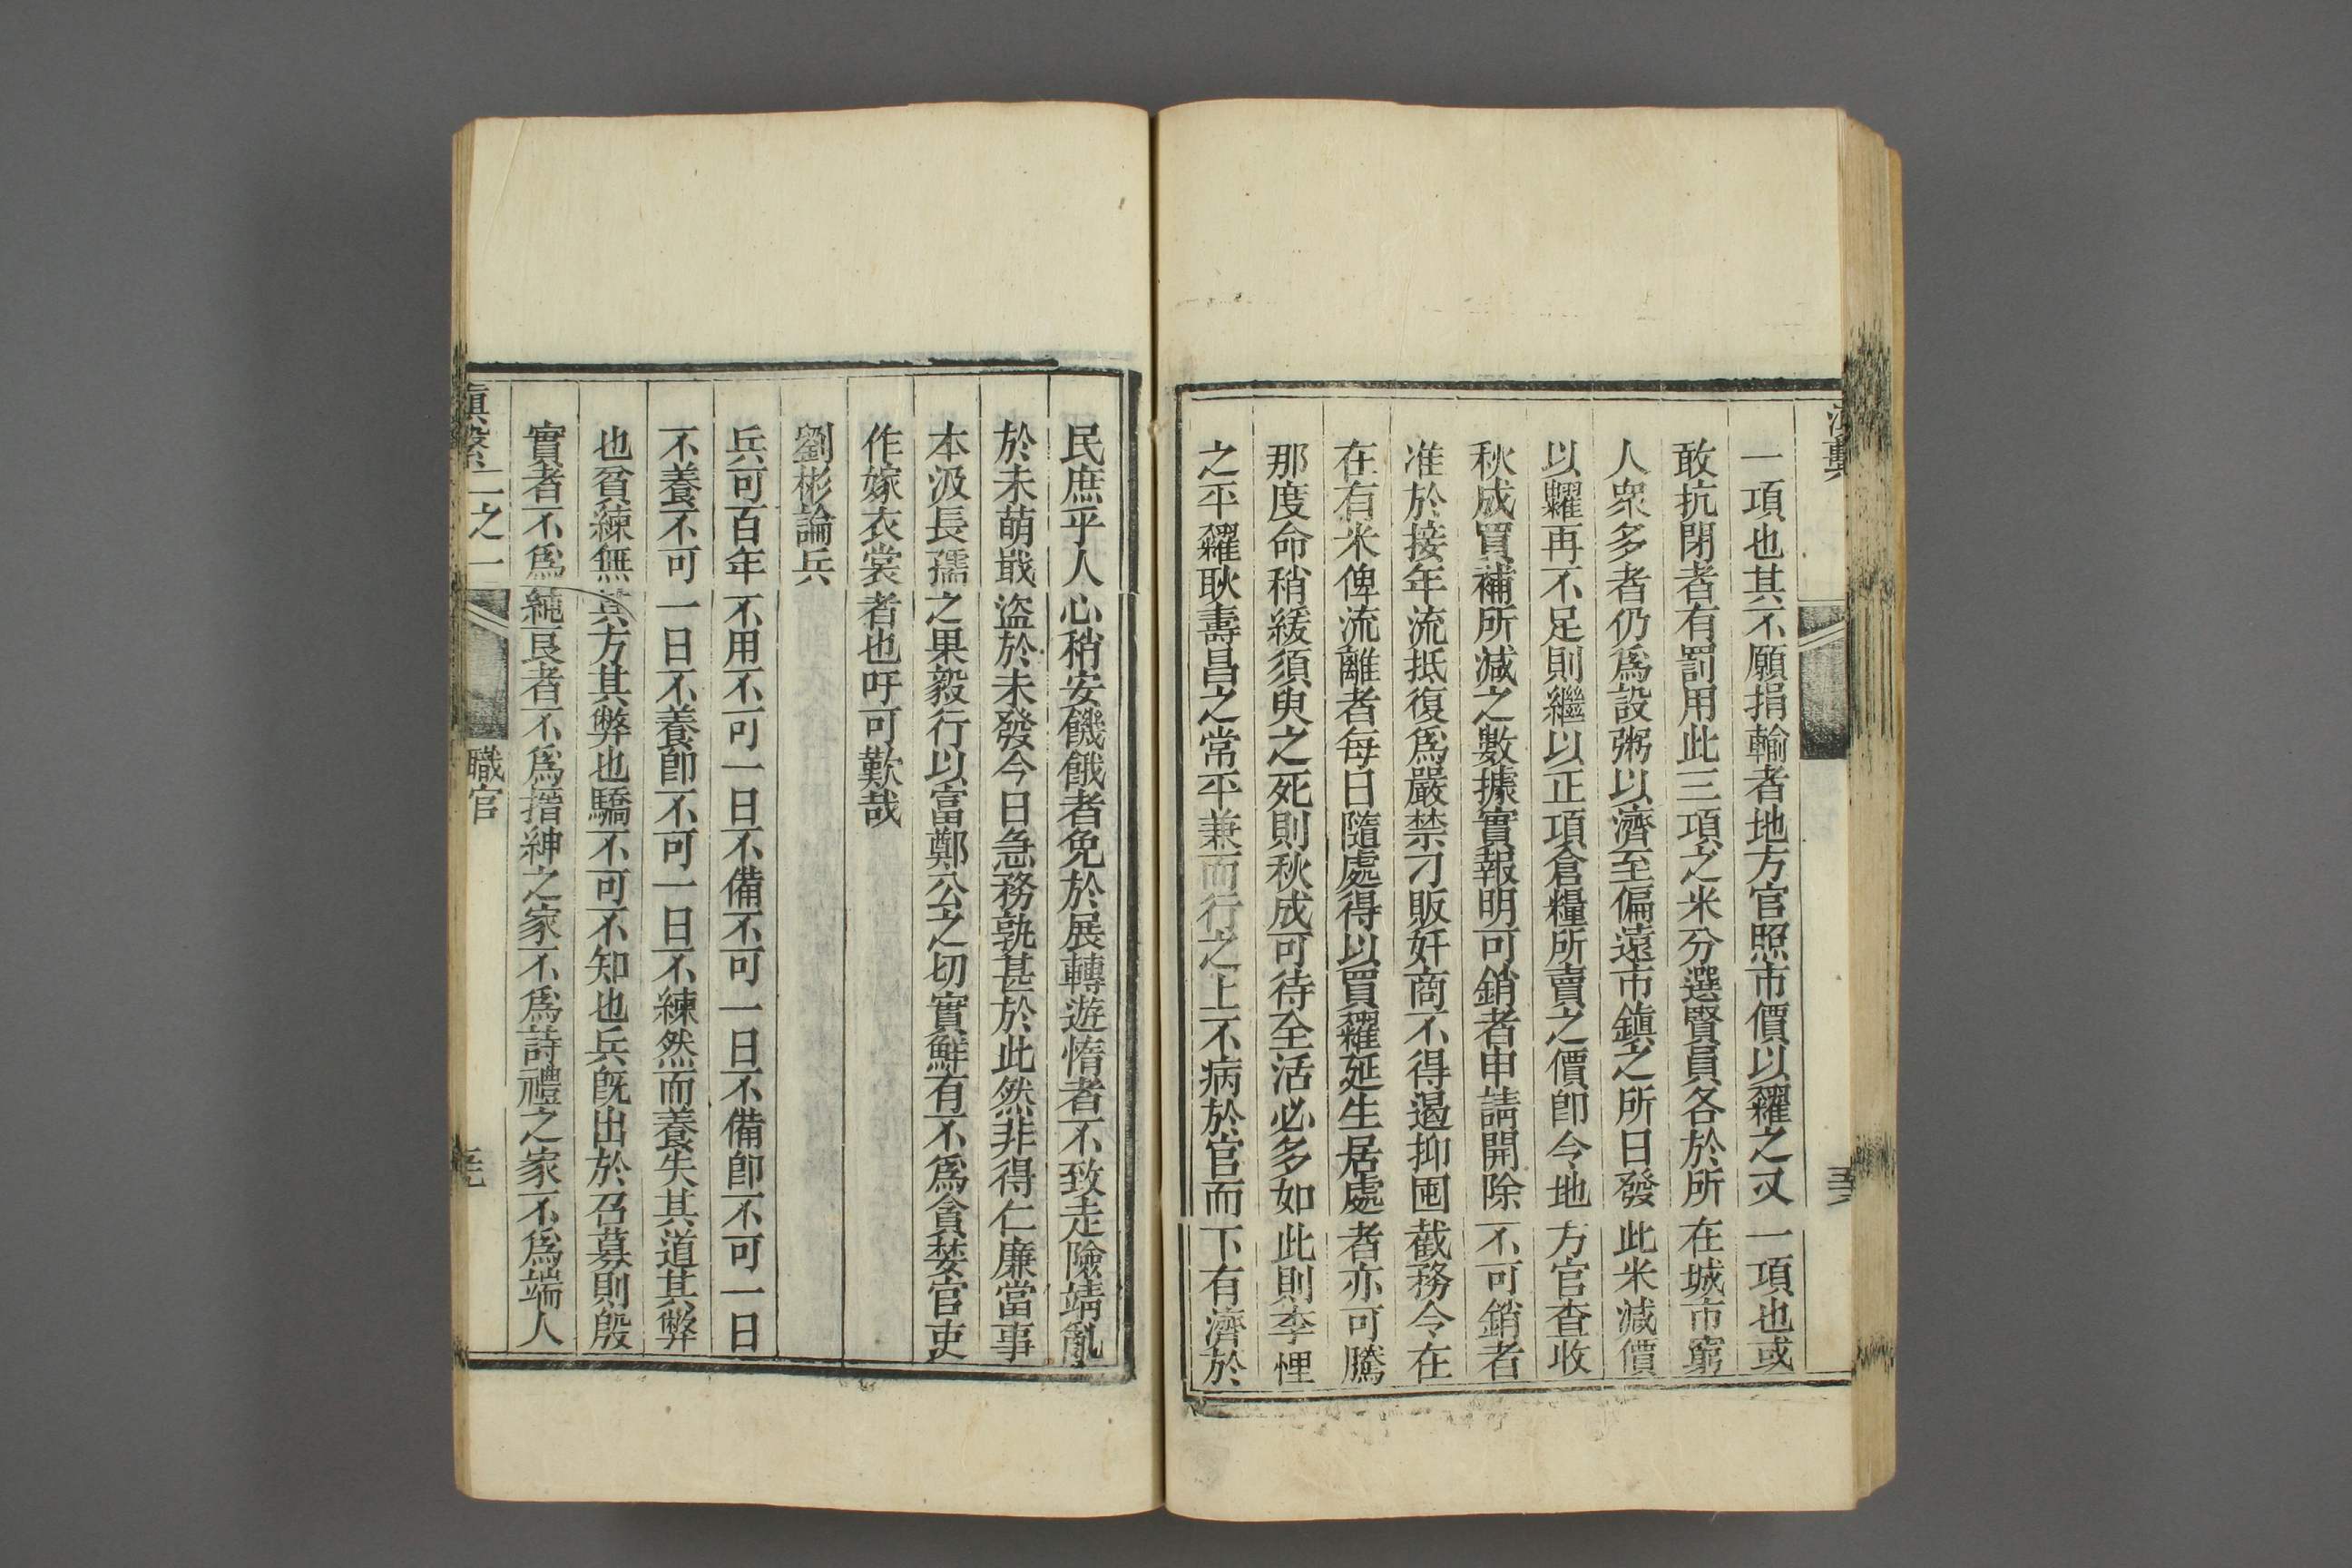 一項也其不願捐輸者地方官照市價以糴之又一項也或
敢抗閉者有罰用此三項之米分選賢員各於所在城市窮
人衆多者仍爲設粥以濟至偏遠市鎮之所日發此米減價
以糶再不足則繼以正項倉糧所賣之價卽令地方官查收
秋成買補所減之數據實報明可銷者申請開除不可銷者
准於接年流抵復爲嚴禁刁販奸商不得遏抑囤截務令在
在有米俾流離者每日隨處得以買糴延生居處者亦可騰
那度命稍緩須臾之死則秋成可待全活必多如此則李悝
之平糴耿壽昌之常平兼而行之上不病於官而下有濟於
民庶乎人心稍安饑餓者免於展轉遊惰者不致走險靖亂
於未萌戢盜於未發今日急務孰甚於此然非得仁廉當事
本汲長孺之果毅行以富鄭公之切實鮮有不爲貪婪官吏
作嫁衣裳者也吁可歎哉
劉彬論兵
兵可百年不用不可一日不備不可一日不備卽不可一日
不養不可一日不養卽不可一日不練然而養失其道其弊
也貧練無其方其弊也驕不可不知也兵旣出於召募則殷
實者不爲純良者不爲搢紳之家不爲詩禮之家不爲端人
滇繫二之一 職官